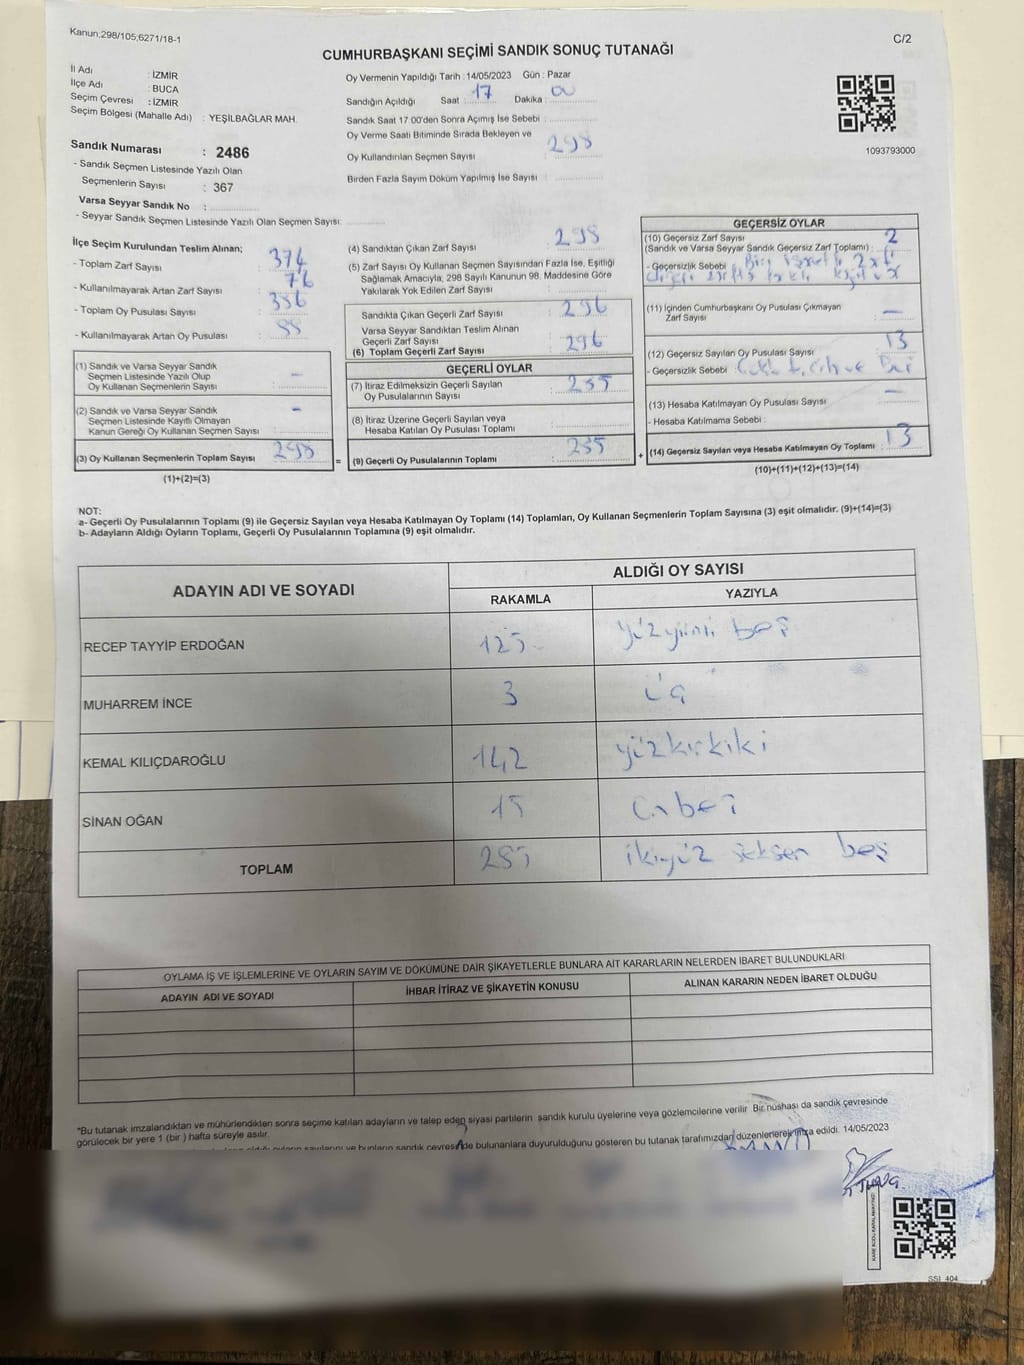 Kanun;298/105;6271/18-1
C/2
CUMHURBAŞKANI SEÇİMİ SANDIK SONUÇ TUTANAĞI
İl Adı : İZMİR
İlçe Adı : BUCA
Seçim Çevresi : İZMİR
Seçim Bölgesi (Mahalle Adı) : YEŞİLBAĞLAR MAH.
Sandık Numarası : 2486
- Sandık Seçmen Listesinde Yazılı Olan
Seçmenlerin Sayısı : 367
Varsa Seyyar Sandık No :
- Seyyar Sandık Seçmen Listesinde Yazılı Olan Seçmen Sayısı:
Oy Vermenin Yapıldığı Tarih : 14/05/2023 Gün : Pazar
Sandığın Açıldığı Saat : 17 Dakika : 00
Sandık Saat 17:00'den Sonra Açımış İse Sebebi :
Oy Verme Saati Bitiminde Sırada Bekleyen ve
Oy Kullandırılan Seçmen Sayısı : 298
Birden Fazla Sayım Döküm Yapılmış İse Sayısı :
1093793000
İlçe Seçim Kurulundan Teslim Alınan;
- Toplam Zarf Sayısı : 374
- Kullanılmayarak Artan Zarf Sayısı : 76
- Toplam Oy Pusulası Sayısı : 386
- Kullanılmayarak Artan Oy Pusulası : 88
(1) Sandık ve Varsa Seyyar Sandık
Seçmen Listesinde Yazılı Olup
Oy Kullanan Seçmenlerin Sayısı : -
(2) Sandık ve Varsa Seyyar Sandık
Seçmen Listesinde Kayıtlı Olmayan
Kanun Gereği Oy Kullanan Seçmen Sayısı : -
(3) Oy Kullanan Seçmenlerin Toplam Sayısı : 298
(1)+(2)=(3)
(4) Sandıktan Çıkan Zarf Sayısı : 298
(5) Zarf Sayısı Oy Kullanan Seçmen Sayısından Fazla İse, Eşitliği
Sağlamak Amacıyla, 298 Sayılı Kanunun 98. Maddesine Göre
Yakılarak Yok Edilen Zarf Sayısı :
Sandıkta Çıkan Geçerli Zarf Sayısı : 296
Varsa Seyyar Sandıktan Teslim Alınan
Geçerli Zarf Sayısı :
(6) Toplam Geçerli Zarf Sayısı : 296
=
GEÇERLİ OYLAR
(7) İtiraz Edilmeksizin Geçerli Sayılan
Oy Pusulalarının Sayısı : 285
(8) İtiraz Üzerine Geçerli Sayılan veya
Hesaba Katılan Oy Pusulası Toplamı :
(9) Geçerli Oy Pusulalarının Toplamı : 285
+
GEÇERSİZ OYLAR
(10) Geçersiz Zarf Sayısı
(Sandık ve Varsa Seyyar Sandık Geçersiz Zarf Toplamı) : 2
- Geçersizlik Sebebi :
(11) İçinden Cumhurbaşkanı Oy Pusulası Çıkmayan
Zarf Sayısı : -
(12) Geçersiz Sayılan Oy Pusulası Sayısı : 13
- Geçersizlik Sebebi :
(13) Hesaba Katılmayan Oy Pusulası Sayısı : -
- Hesaba Katılmama Sebebi :
(14) Geçersiz Sayılan veya Hesaba Katılmayan Oy Toplamı : 13
(10)+(11)+(12)+(13)=(14)
NOT:
a- Geçerli Oy Pusulalarının Toplamı (9) ile Geçersiz Sayılan veya Hesaba Katılmayan Oy Toplamı (14) Toplamları, Oy Kullanan Seçmenlerin Toplam Sayısına (3) eşit olmalıdır. (9)+(14)=(3)
b- Adayların Aldığı Oyların Toplamı, Geçerli Oy Pusulalarının Toplamına (9) eşit olmalıdır.
ADAYIN ADI VE SOYADI
ALDIĞI OY SAYISI
RAKAMLA YAZIYLA
RECEP TAYYİP ERDOĞAN 125 yüzyirmi beş
MUHARREM İNCE 3 üç
KEMAL KILIÇDAROĞLU 142 yüzkırkiki
SİNAN OĞAN 15 onbeş
TOPLAM 285 ikiyüz seksen beş
OYLAMA İŞ VE İŞLEMLERİNE VE OYLARIN SAYIM VE DÖKÜMÜNE DAİR ŞİKAYETLERLE BUNLARA AİT KARARLARIN NELERDEN İBARET BULUNDUKLARI
ADAYIN ADI VE SOYADI İHBAR İTİRAZ VE ŞİKAYETİN KONUSU ALINAN KARARIN NEDEN İBARET OLDUĞU
*Bu tutanak imzalandıktan ve mühürlendikten sonra seçime katılan adayların ve talep eden siyasi partilerin sandık kurulu üyelerine veya gözlemcilerine verilir. Bir nüshası da sandık çevresinde
görülecek bir yere 1 (bir) hafta süreyle asılır.
oyların sayılarını ve bunların sandık çevresinde bulunanlara duyurulduğunu gösteren bu tutanak tarafımızdan düzenlenerek imza edildi. 14/05/2023
KARE KODU KARALAMAYINIZ!
SSI_404